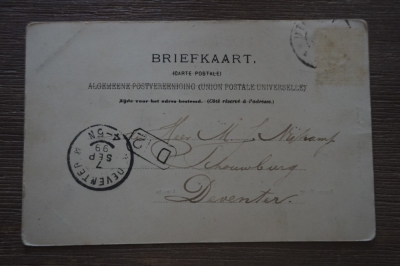 BRIEFKAART.
(CARTE POSTALE)
ALGEMEENE POSTVEREENIGING (UNION POSTALE UNIVERSELLE)
Zijde voor het adres bestemd. (Côté réservé à l'adresse.)
Heer M. Nijkamp
Schouwburg
Deventer.
DEVENTER
7
SEP
99
4-5N
D